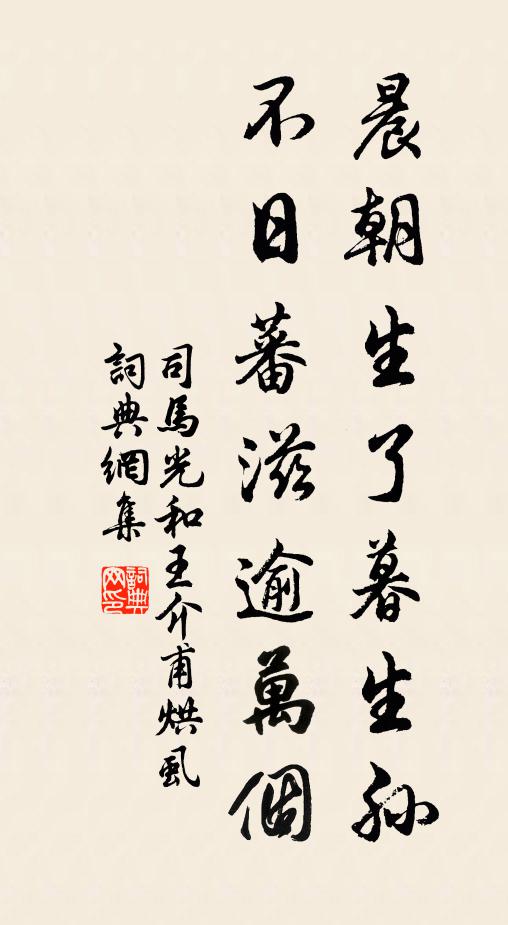 晨朝生了暮生孙
不日蕃滋逾萬個
司馬光和王介甫烘虱
詞典網集
詞典網印